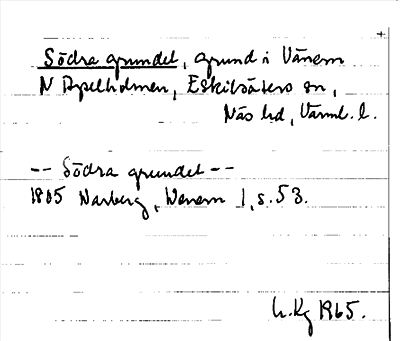 Södra grundet, grund i Vänern
N Apelholmen, Eskilsäters sn,
Näs hd, Värml. l.
-- Södra grundet --
1865 Warberg, Wenern 1, s. 53.
1965.